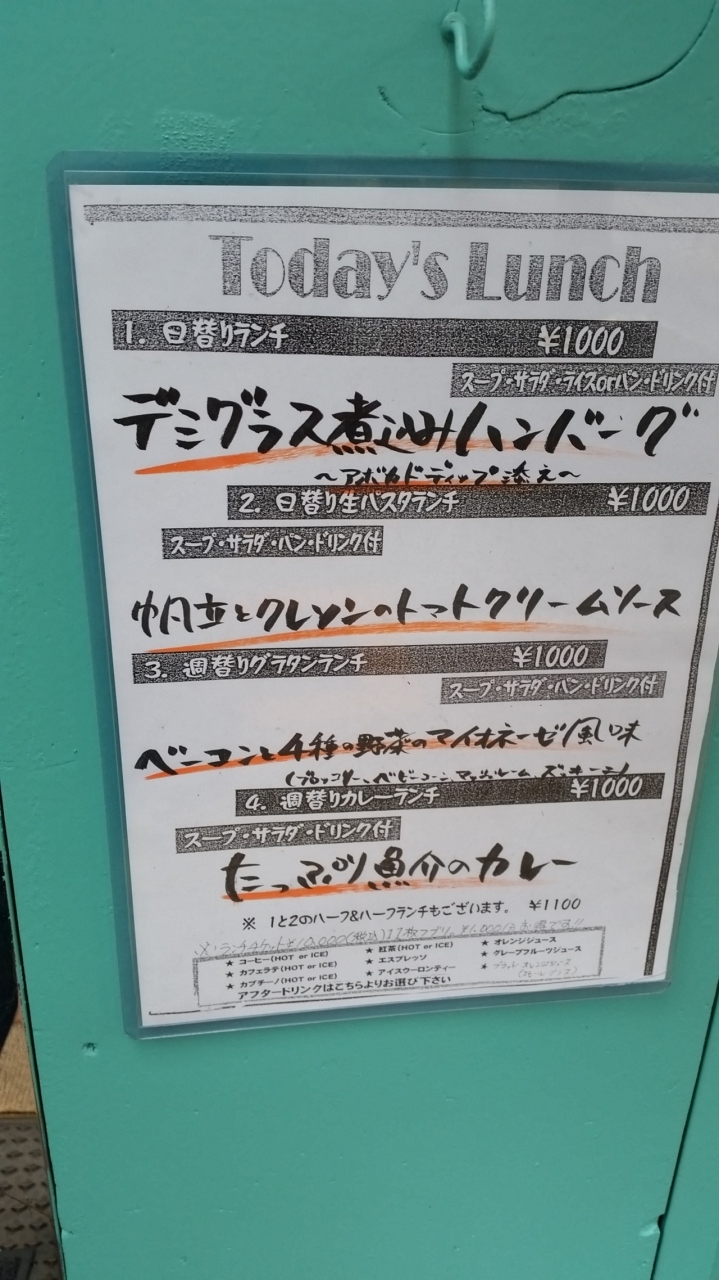 Today's Lunch
1. 日替りランチ ¥1000
スープ・サラダ・ライスorパン・ドリンク付
デミグラス煮込みハンバーグ
～アボカドディップ添え～
2. 日替り生パスタランチ ¥1000
スープ・サラダ・パン・ドリンク付
帆立とクレソンのトマトクリームソース
3. 週替りグラタンランチ ¥1000
スープ・サラダ・パン・ドリンク付
ベーコンと4種の野菜のマイオネーゼ風味
(ブロッコリー、ベビーコーン、マッシュルーム、ズッキーニ)
4. 週替りカレーランチ ¥1000
スープ・サラダ・ドリンク付
たっぷり魚介のカレー
※ 1と2のハーフ&ハーフランチもございます。 ¥1100
※ランチチケット¥10,000(税込)11枚ツヅリ
★ コーヒー(HOT or ICE) ★ 紅茶(HOT or ICE) ★ オレンジジュース
★ カフェラテ(HOT or ICE) ★ エスプレッソ ★ グレープフルーツジュース
★ カプチーノ(HOT or ICE) ★ アイスウーロンティー ★ ブラッドオレンジジュース
アフタードリンクはこちらよりお選び下さい